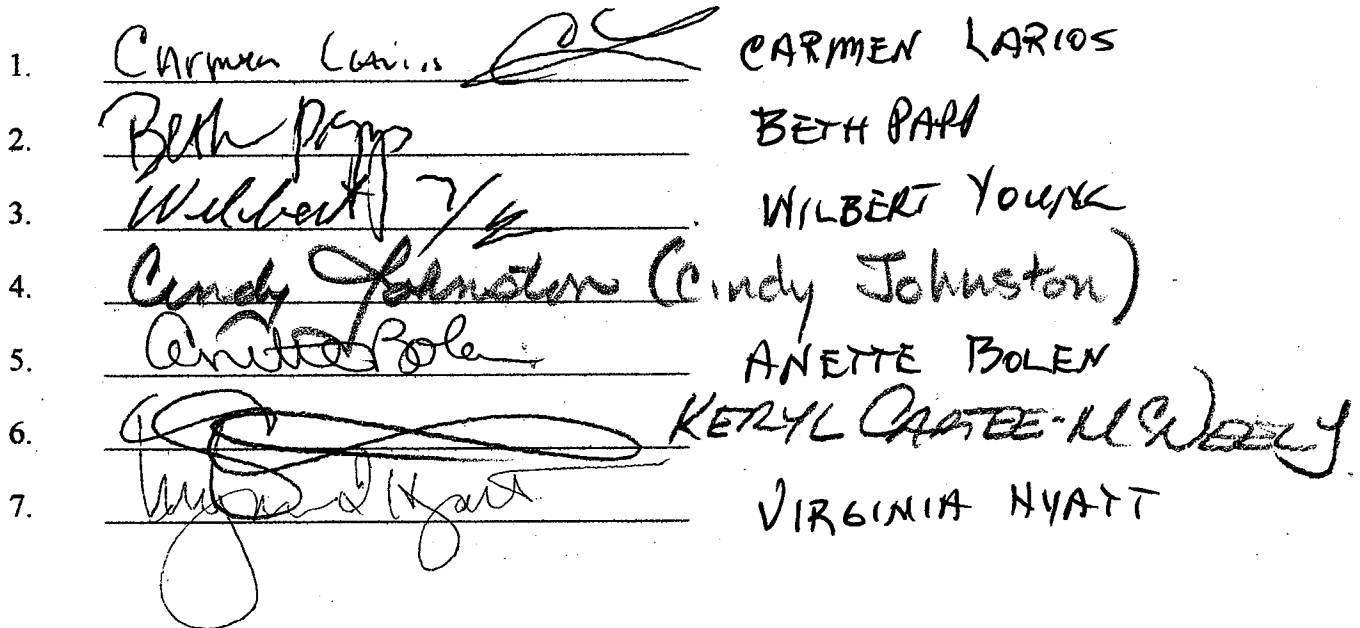 1. Carmen Larios CARMEN LARIOS
2. Beth Papp BETH PAPP
3. Wilbert Y WILBERT YOUNG
4. Cindy Johnston (Cindy Johnston)
5. Anette Bolen ANETTE BOLEN
6. KERYL CARTEE-MCNEELY
7. Virginia L Hyatt VIRGINIA HYATT